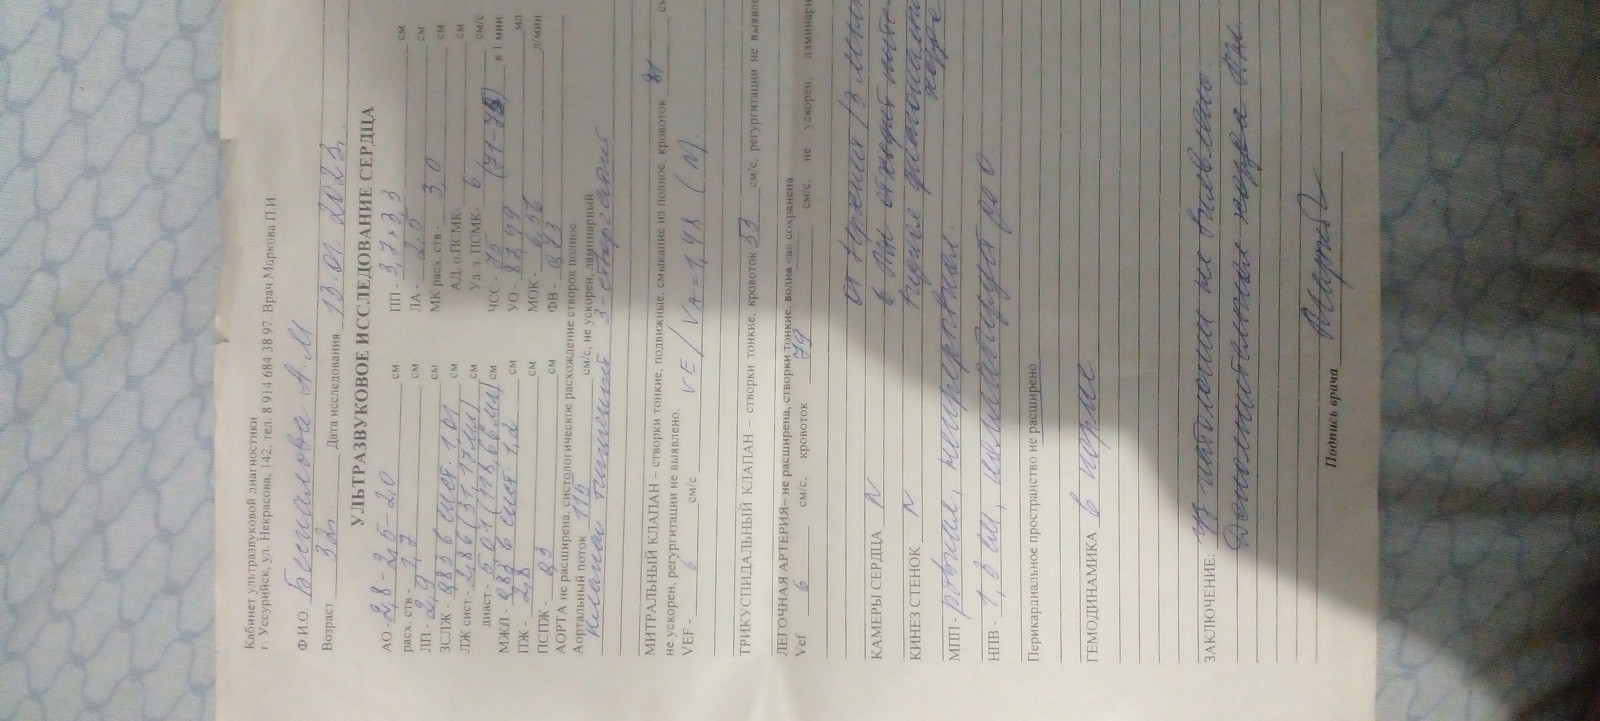 Кабинет ультразвуковой диагностики
г. Уссурийск, ул. Некрасова, 142, тел. 8 914 684 38 97. Врач Маркова П.И
Ф.И.О. Беспалова А.М
Возраст 32г. Дата исследования 13.01.2023г.
УЛЬТРАЗВУКОВОЕ ИССЛЕДОВАНИЕ СЕРДЦА
АО - 2,8-2,5-2,0 см ПП - 3,7х3,3 см
расх. ств - 1,7 см ЛА - 2,0 см
ЛП - 2,9 см МК расх. ств. - 3,0 см
ЗСЛЖ - 0,83 в сист. 1,01 см АД о.ПСМК- см
ЛЖ сист - 2,86 (31,17мл) см Уд. з.ПСМК- 6 см/с
диаст - 5,01 (118,66мл) см ЧСС - в 1 мин
МЖП - 0,83 в сист. 1,2 см УО - мл
ПЖ - 2,8 см МОК - 6,56 л/мин
ПСПЖ - 0,3 см ФВ - 0,73
АОРТА не расширена, систологическое расхождение створок полное.
Аортальный поток 116 см/с, не ускорен, ламинарный
Клапан типичный 3-створчатый
МИТРАЛЬНЫЙ КЛАПАН – створки тонкие, подвижные, смыкание из полное. кровоток 81 см
не ускорен, регургитации не выявлено.
VEF - 6 см/с VE/VA = 1,48 (N)
ТРИКУСПИДАЛЬНЫЙ КЛАПАН – створки тонкие. кровоток 53 см/с, регургитации не выявле
ЛЕГОЧНАЯ АРТЕРИЯ– не расширена, створки тонкие. волна «а» сохранена
Vef 6 см/с, кровоток 79 см/с, не ускорен, ламинарн
КАМЕРЫ СЕРДЦА N
КИНЕЗ СТЕНОК N
МПП - ровные, непрерывная.
НПВ - 1,3 см, коллабирует до 0
Перикардиальное пространство не расширено
ГЕМОДИНАМИКА в норме
ЗАКЛЮЧЕНИЕ: патологии не выявлено.
Дополнительная хорда ЛЖ.
Подпись врача